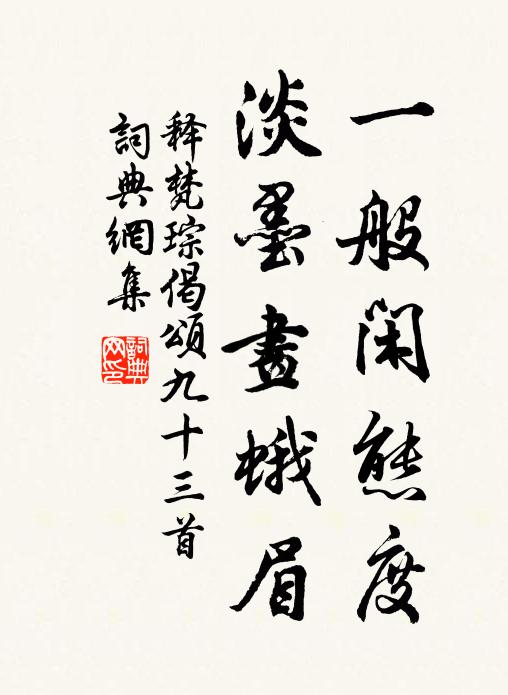 一般閑態度
淡墨畫蛾眉
釋梵琮偈頌九十三首
詞典網集
詞典網印